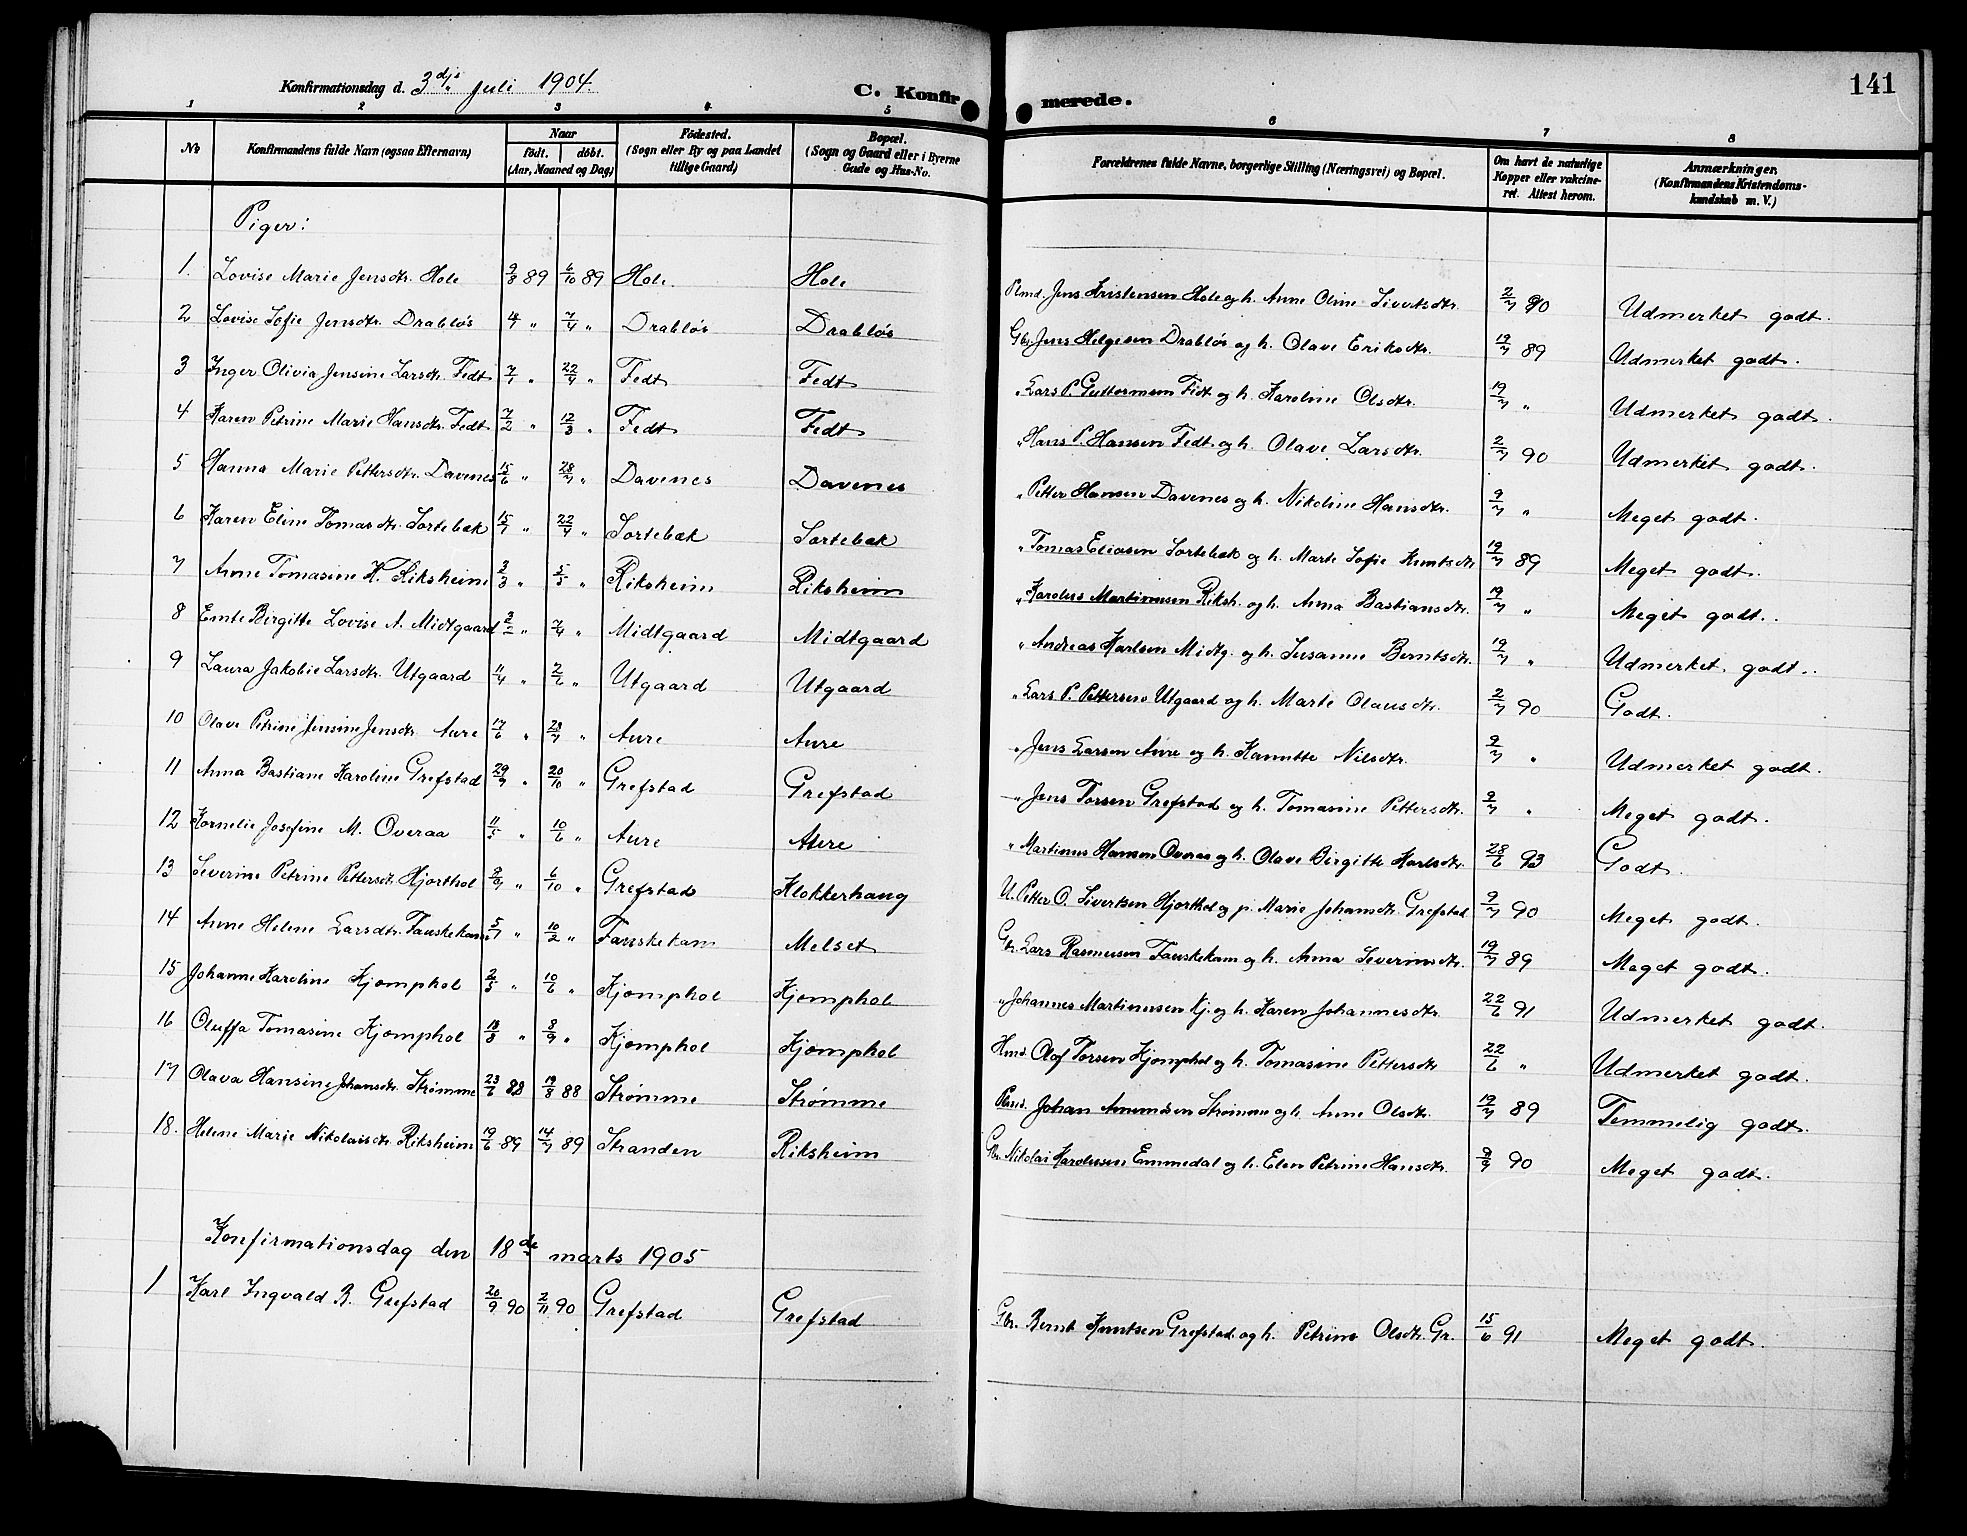 141
Konfirmationsdag d. 3dje Juli 1904. C. Konfirmerede.
1 2 3 4 5 6 7 8
No Konfirmandens fulde Navn (ogsaa Efternavn) Naar født. døbt. (Aar, Maaned og Dag) Fødested. (Sogn eller By og paa Landet tillige Gaard) Bopæl. (Sogn og Gaard eller i Byerne Gade og Hus-No. Forældrenes fulde Navne, borgerlige Stilling (Næringsvei) og Bopæl. Om havt de naturlige Kopper eller vakcineret. Attest herom. Anmærkninger. (Konfirmandens Kristendomskundskab m. V.)
Piger:
1. Lovise Marie Jensdtr. Hole 9/8 89 6/10 89 Hole Hole Plmd. Jens Kristensen Hole og h. Anne Oline Sivertsdtr. 2/7 90 Udmerket godt.
2 Lovise Sofie Jensdtr. Drabløs " 7/4 " Drabløs Drabløs Gbr. Jens Helgesen Drabløs og h. Olave Eriksdtr. 19/7 89 Udmerket godt.
3 Inger Olivia Jensine Larsdtr. Fedt 7/1 " 22/4 " Fedt Fedt " Lars P. Guttormsen Fedt og h. Karoline Olsdtr. 19/7 " Udmerket godt.
4 Karen Petrine Marie Hansdtr. Fedt 7/2 " 12/3 " Fedt Fedt " Hans P. Hansen Fedt og h. Olave Larsdtr. 2/7 90 Udmerket godt.
5 Hanna Marie Pettersdtr. Davenes 15/6 " 28/7 " Davenes Davenes " Petter Hansen Davenes og h. Nikoline Hansdtr. 9/7 " Meget godt.
6 Karen Eline Tomasdtr. Sortebæk 15/7 " 22/4 " Sortebæk Sortebæk " Tomas Eliasen Sortebæk og h. Marte Sofie Knutsdtr 19/7 89 Meget godt.
7 Anne Tomasine K. Riksheim 3/3 " 5/5 " Riksheim Riksheim " Karolus Martinusen Riksh. og h. Anna Bastiansdtr. 19/7 " Meget godt.
8 Emte Birgitte Lovise A. Midtgaard " 7/4 " Midtgaard Midtgaard " Andreas Karlsen Midtg. og h. Susanne Berntsdtr. 19/7 " Udmerket godt.
9 Laura Jakobie Larsdtr. Utgaard 11/4 " 2/6 " Utgaard Utgaard " Lars P. Pettersen Utgaard og h. Marte Olausdtr. 2/7 90 Godt.
10 Olave Petrine Jensine Jensdtr. Aure 17/6 " 28/7 " Aure Aure " Jens Larsen Aure og h. Kanutte Nilsdtr. 9/7 " Udmerket godt.
11 Anna Bastiane Karoline Grefstad 29/7 " 20/10 " Grefstad Grefstad " Jens Torsen Grefstad og h. Tomasine Pettersdtr. 9/7 " Meget godt.
12 Kornelie Josefine M. Overaa 11/5 " 10/6 " Aure Aure " Martinus Hansen Overaa og h. Olave Birgitte Karlsdtr. 28/6 93 Godt.
13 Severine Petrine Pettersdtr. Hjorthol " 6/10 " Grefstad Klokkerhaug U. Petter O. Sivertsen Hjorthol og p. Marie Johansdtr. Grefstad 9/7 90 Meget godt.
14 Anne Helene Larsdtr. Fauskekam 5/1 " 10/2 " Fauskekam Melset Gbr. Lars Rasmusen Fauskekam og h. Anna Severinsdtr. 19/7 89 Meget godt.
15 Johanne Karoline Kjømphol 2/5 " 10/6 " Kjømphol Kjømphol " Johannes Martinusen Kj. og h. Karen Johannesdtr. 22/6 91 Udmerket godt.
16 Oluffa Tomasine Kjømphol 18/8 " 8/9 " Kjømphol Kjømphol Hmd. Olof Torsen Kjømphol og h. Tomasine Pettersdtr 22/6 " Udmerket godt.
17 Olava Hansine Johansdtr. Strømme 23/6 88 19/8 88 Strømme Strømme Plmd. Johan Amundsen Strømme og h. Anne Olsdtr. 19/7 89 Temmelig godt.
18. Helene Marie Nikolaisdtr Riksheim 19/6 89 14/7 89 Stranden Riksheim Gbr. Nikolai Karolusen Emmedal og h. Elen Petrine Hansdtr. 9/9 90 Meget godt.
Konfirmationsdag den 18de marts 1905
1 Karl Ingvald B. Grefstad 20/9 90 2/11 90 Grefstad Grefstad Gbr. Bernt Knutsen Grefstad og h. Petrine Olsdtr. Gr. 15/6 91 Meget godt.